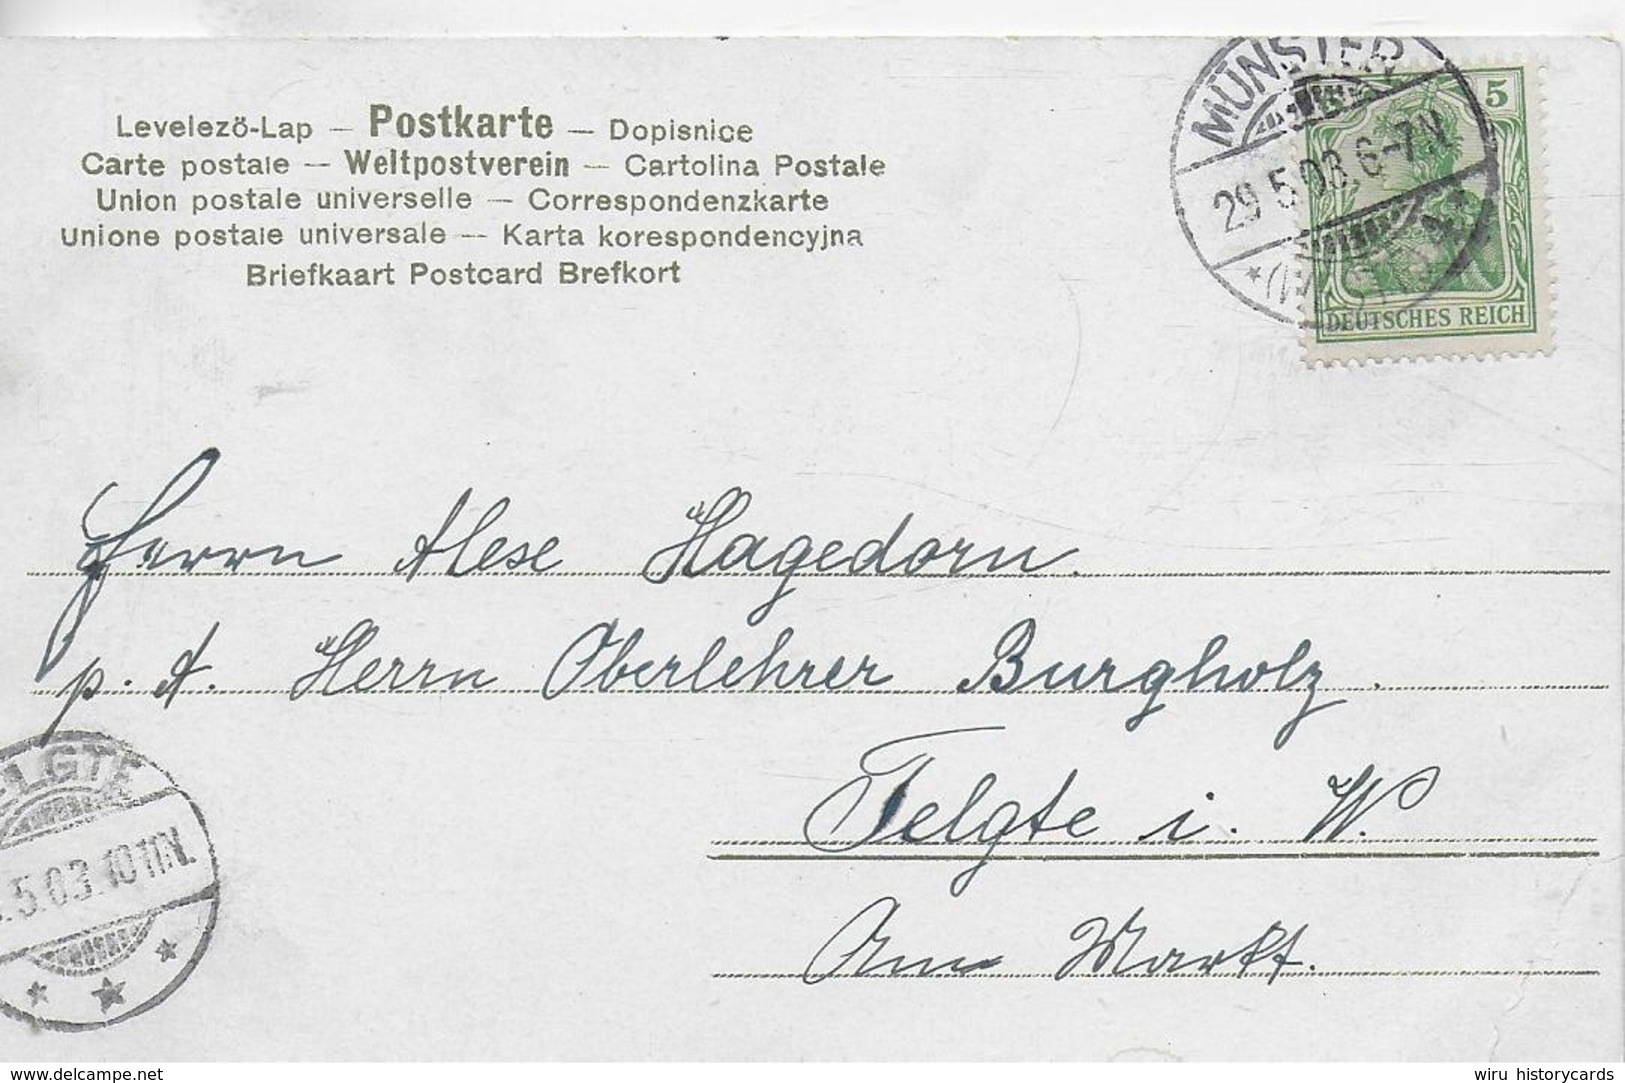 Levelezö-Lap — Postkarte — Dopisnice
Carte postale — Weltpostverein — Cartolina Postale
Union postale universelle — Correspondenzkarte
Unione postale universale — Karta korespondencyjna
Briefkaart Postcard Brefkort
MÜNSTER
29.5.03.6-7N.
5
DEUTSCHES REICH
Herrn Alese Hagedorn.
p. A. Herrn Oberlehrer Burgholz.
Telgte i. W.
Am Markt.
ELGTE
.5.03.1011N.
www.delcampe.net
wiru historycards